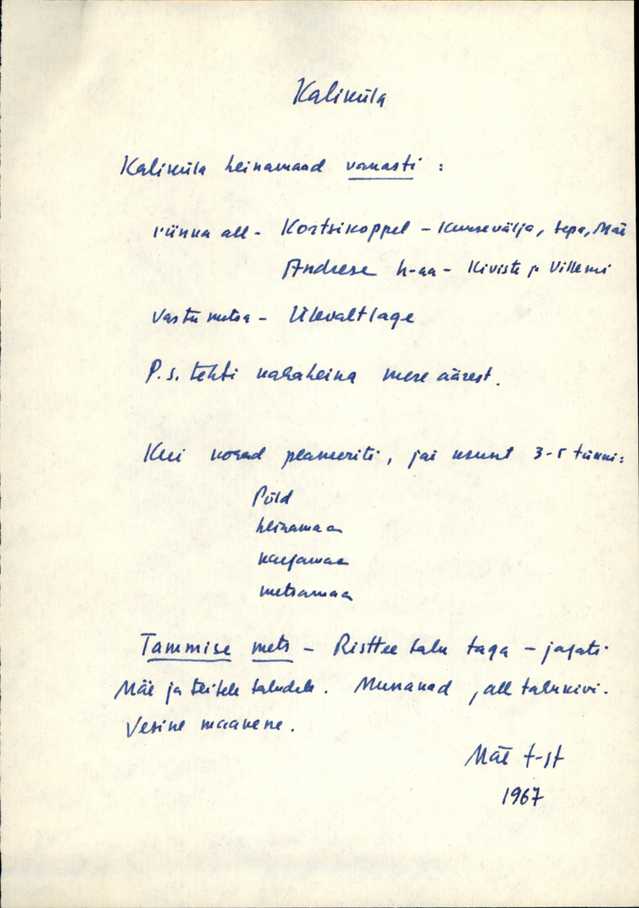 Kaliküla
Kaliküla heinamaad vanasti :
künka all - Kortsikoppel - Kuusevälja, Sepa, Mäe
Andrese h-aa - Kiviste ja Villemi
Vastu metsa - Ülevaltlage
P.s. tehti naha heina mere äärest.
Kui kohad planeeriti, jäi 3-5 tükki:
Põld
heinamaa
karjamaa
metsamaa
Tammise mets - Risttee talu taga - jagati
Mäe ja teistele taludele. Munakad, all talukivi.
Vesine maavene.
Mäe t-st
1967